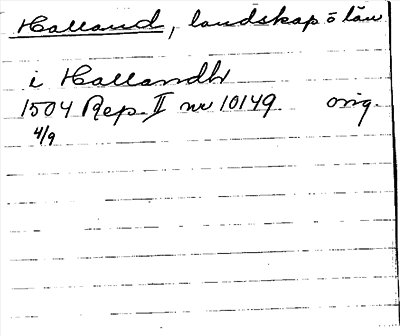 Halland, landskap o län
i Hallandh
1504 Rep. II nr 10149. orig.
4/9